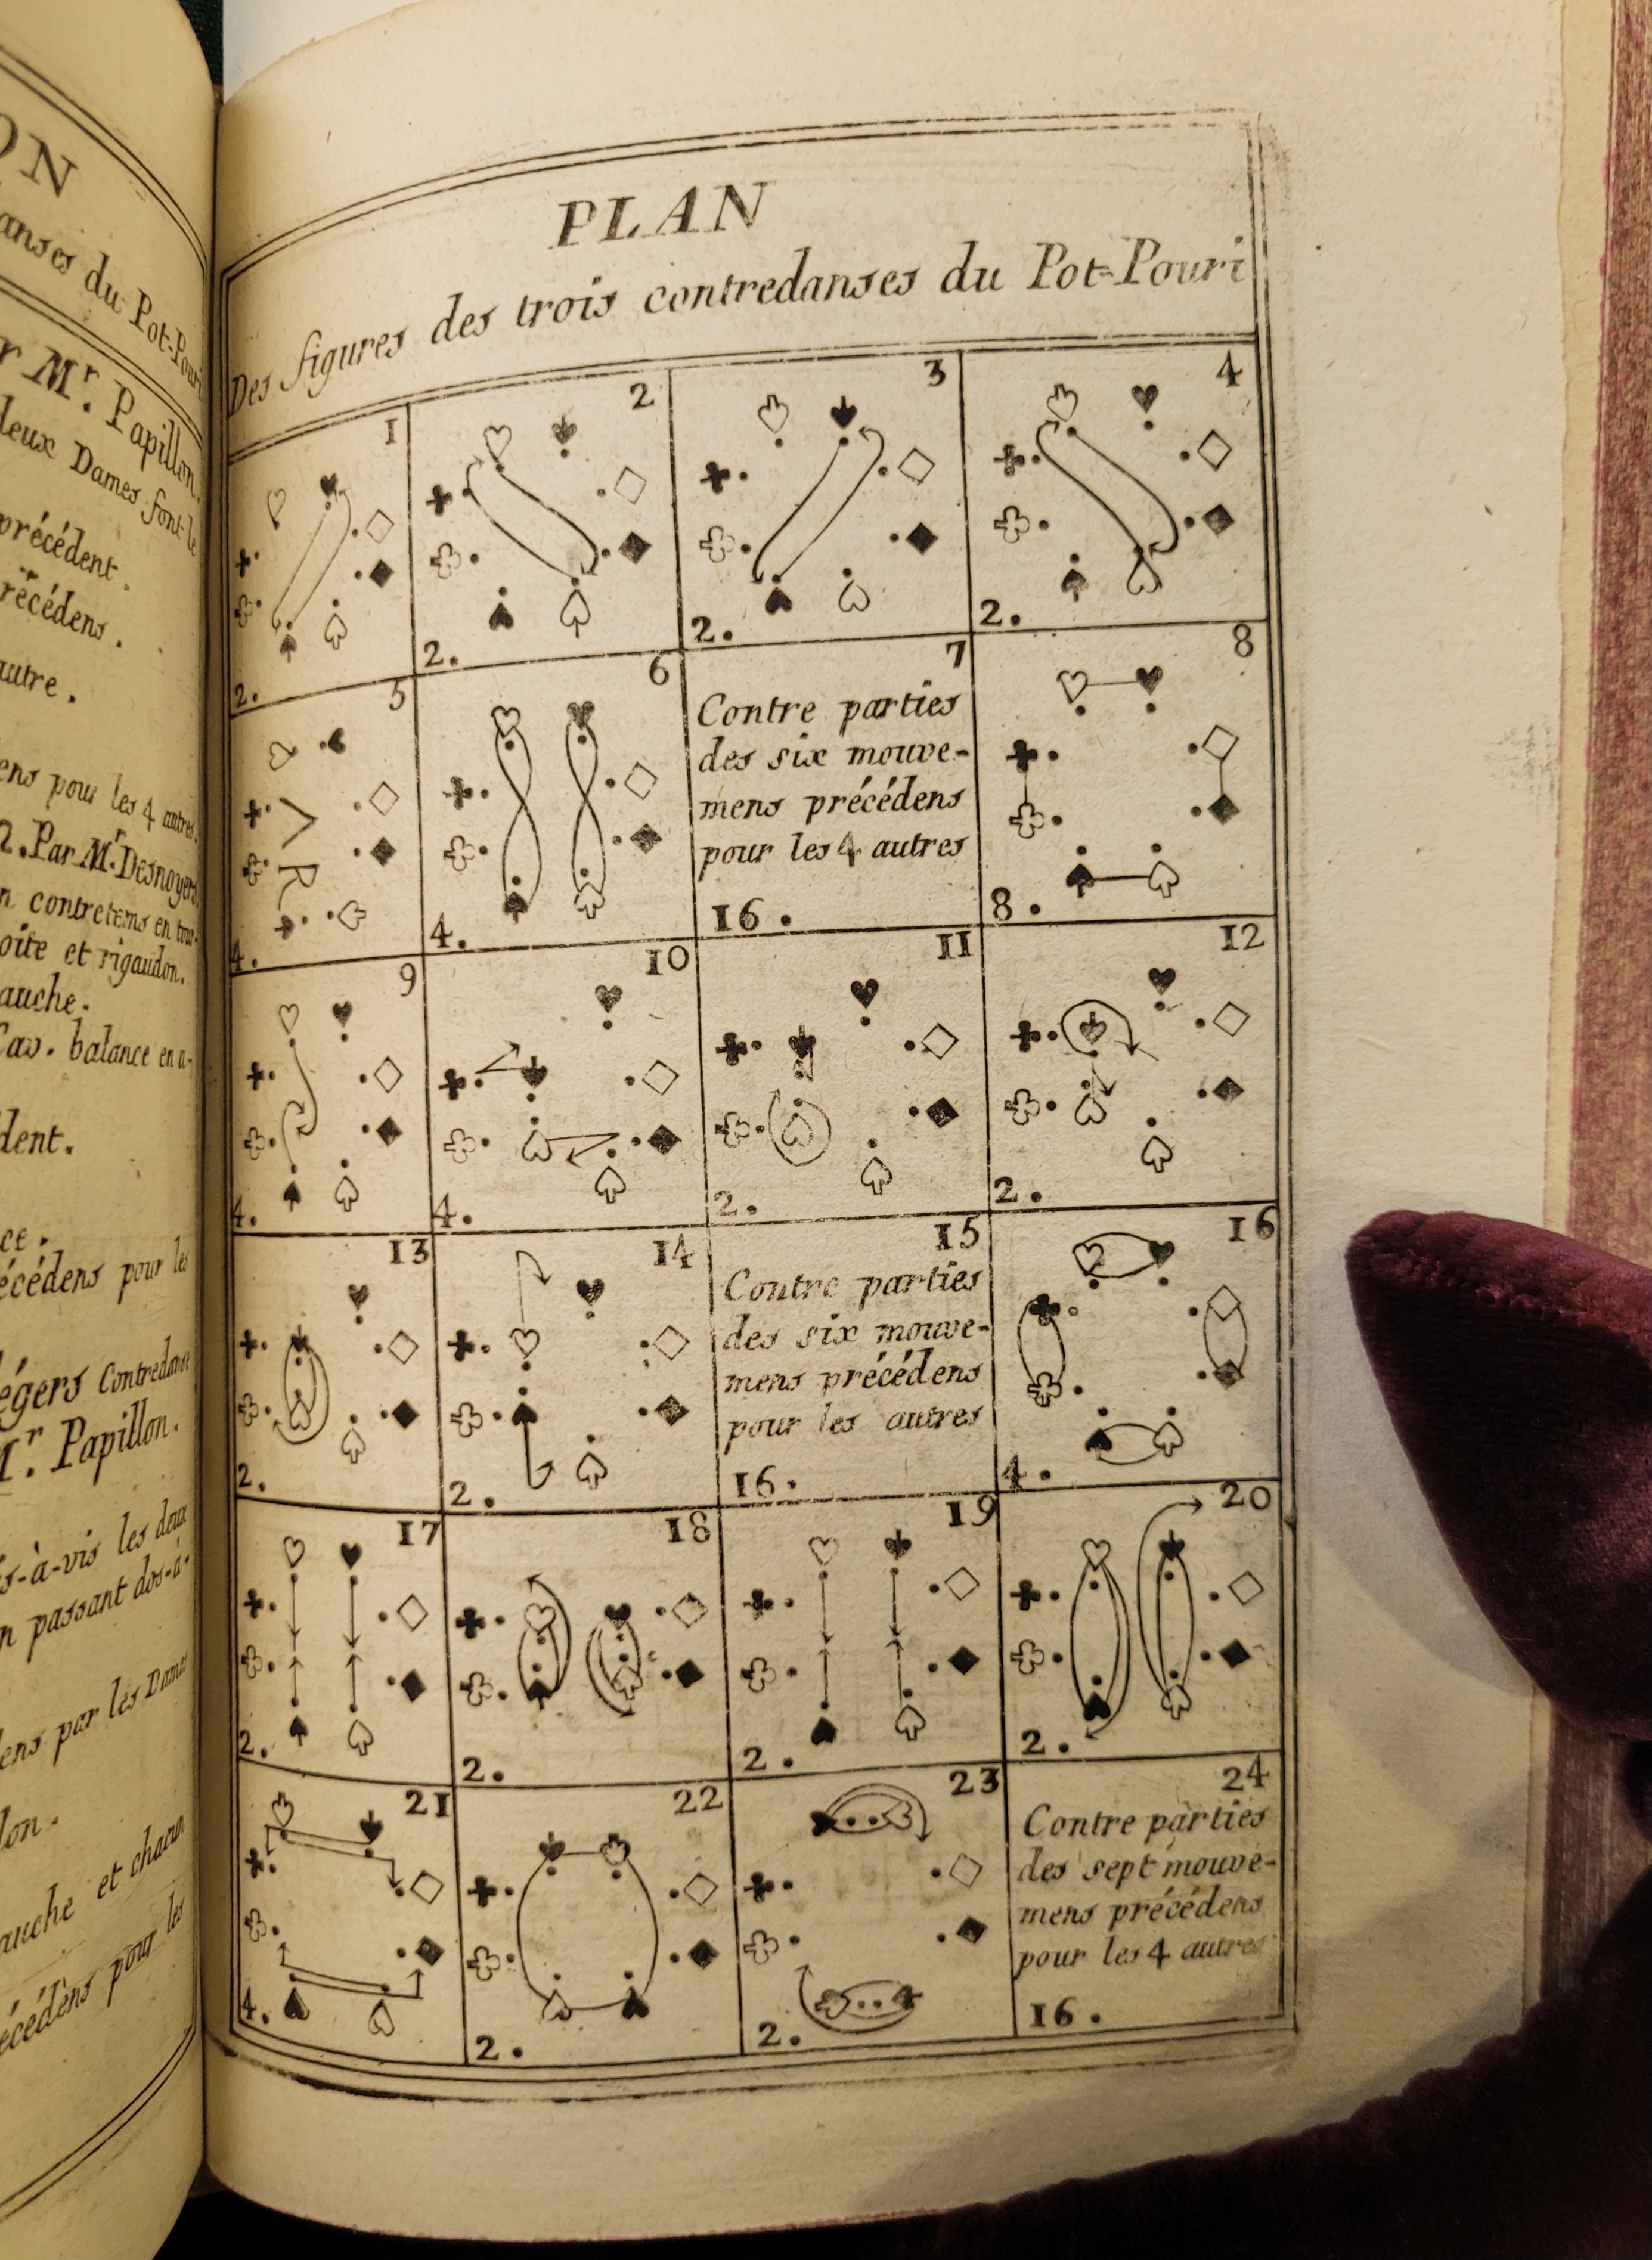 ON
anses du Pot-Pouri
r Mr. Papillon.
deux Dames font le
précédent.
récédens.
autre.
ens pour les 4 autres.
2. Par Mr. Desnoyers
n contretems en tour-
oite et rigaudon.
auche.
Cav. balance en a-
dent.
ce.
écédens pour les
égers Contredanse
Mr. Papillon.
is-à-vis les deux
n passant dos-à-
ens par les Dames
don.
auche et chacun
écédens pour les
PLAN
Des figures des trois contredanses du Pot=Pouri
1
2.
2
2.
3
2.
4
2.
5
4.
6
4.
7
Contre parties
des six mouve-
mens précédens
pour les 4 autres
16.
8
8.
9
4.
10
4.
11
2.
12
2.
13
2.
14
2.
15
Contre parties
des six mouve-
mens précédens
pour les autres
16.
16
4.
17
2.
18
2.
19
2.
20
2.
21
4.
22
2.
23
2.
24
Contre parties
des sept mouve-
mens précédens
pour les 4 autres
16.